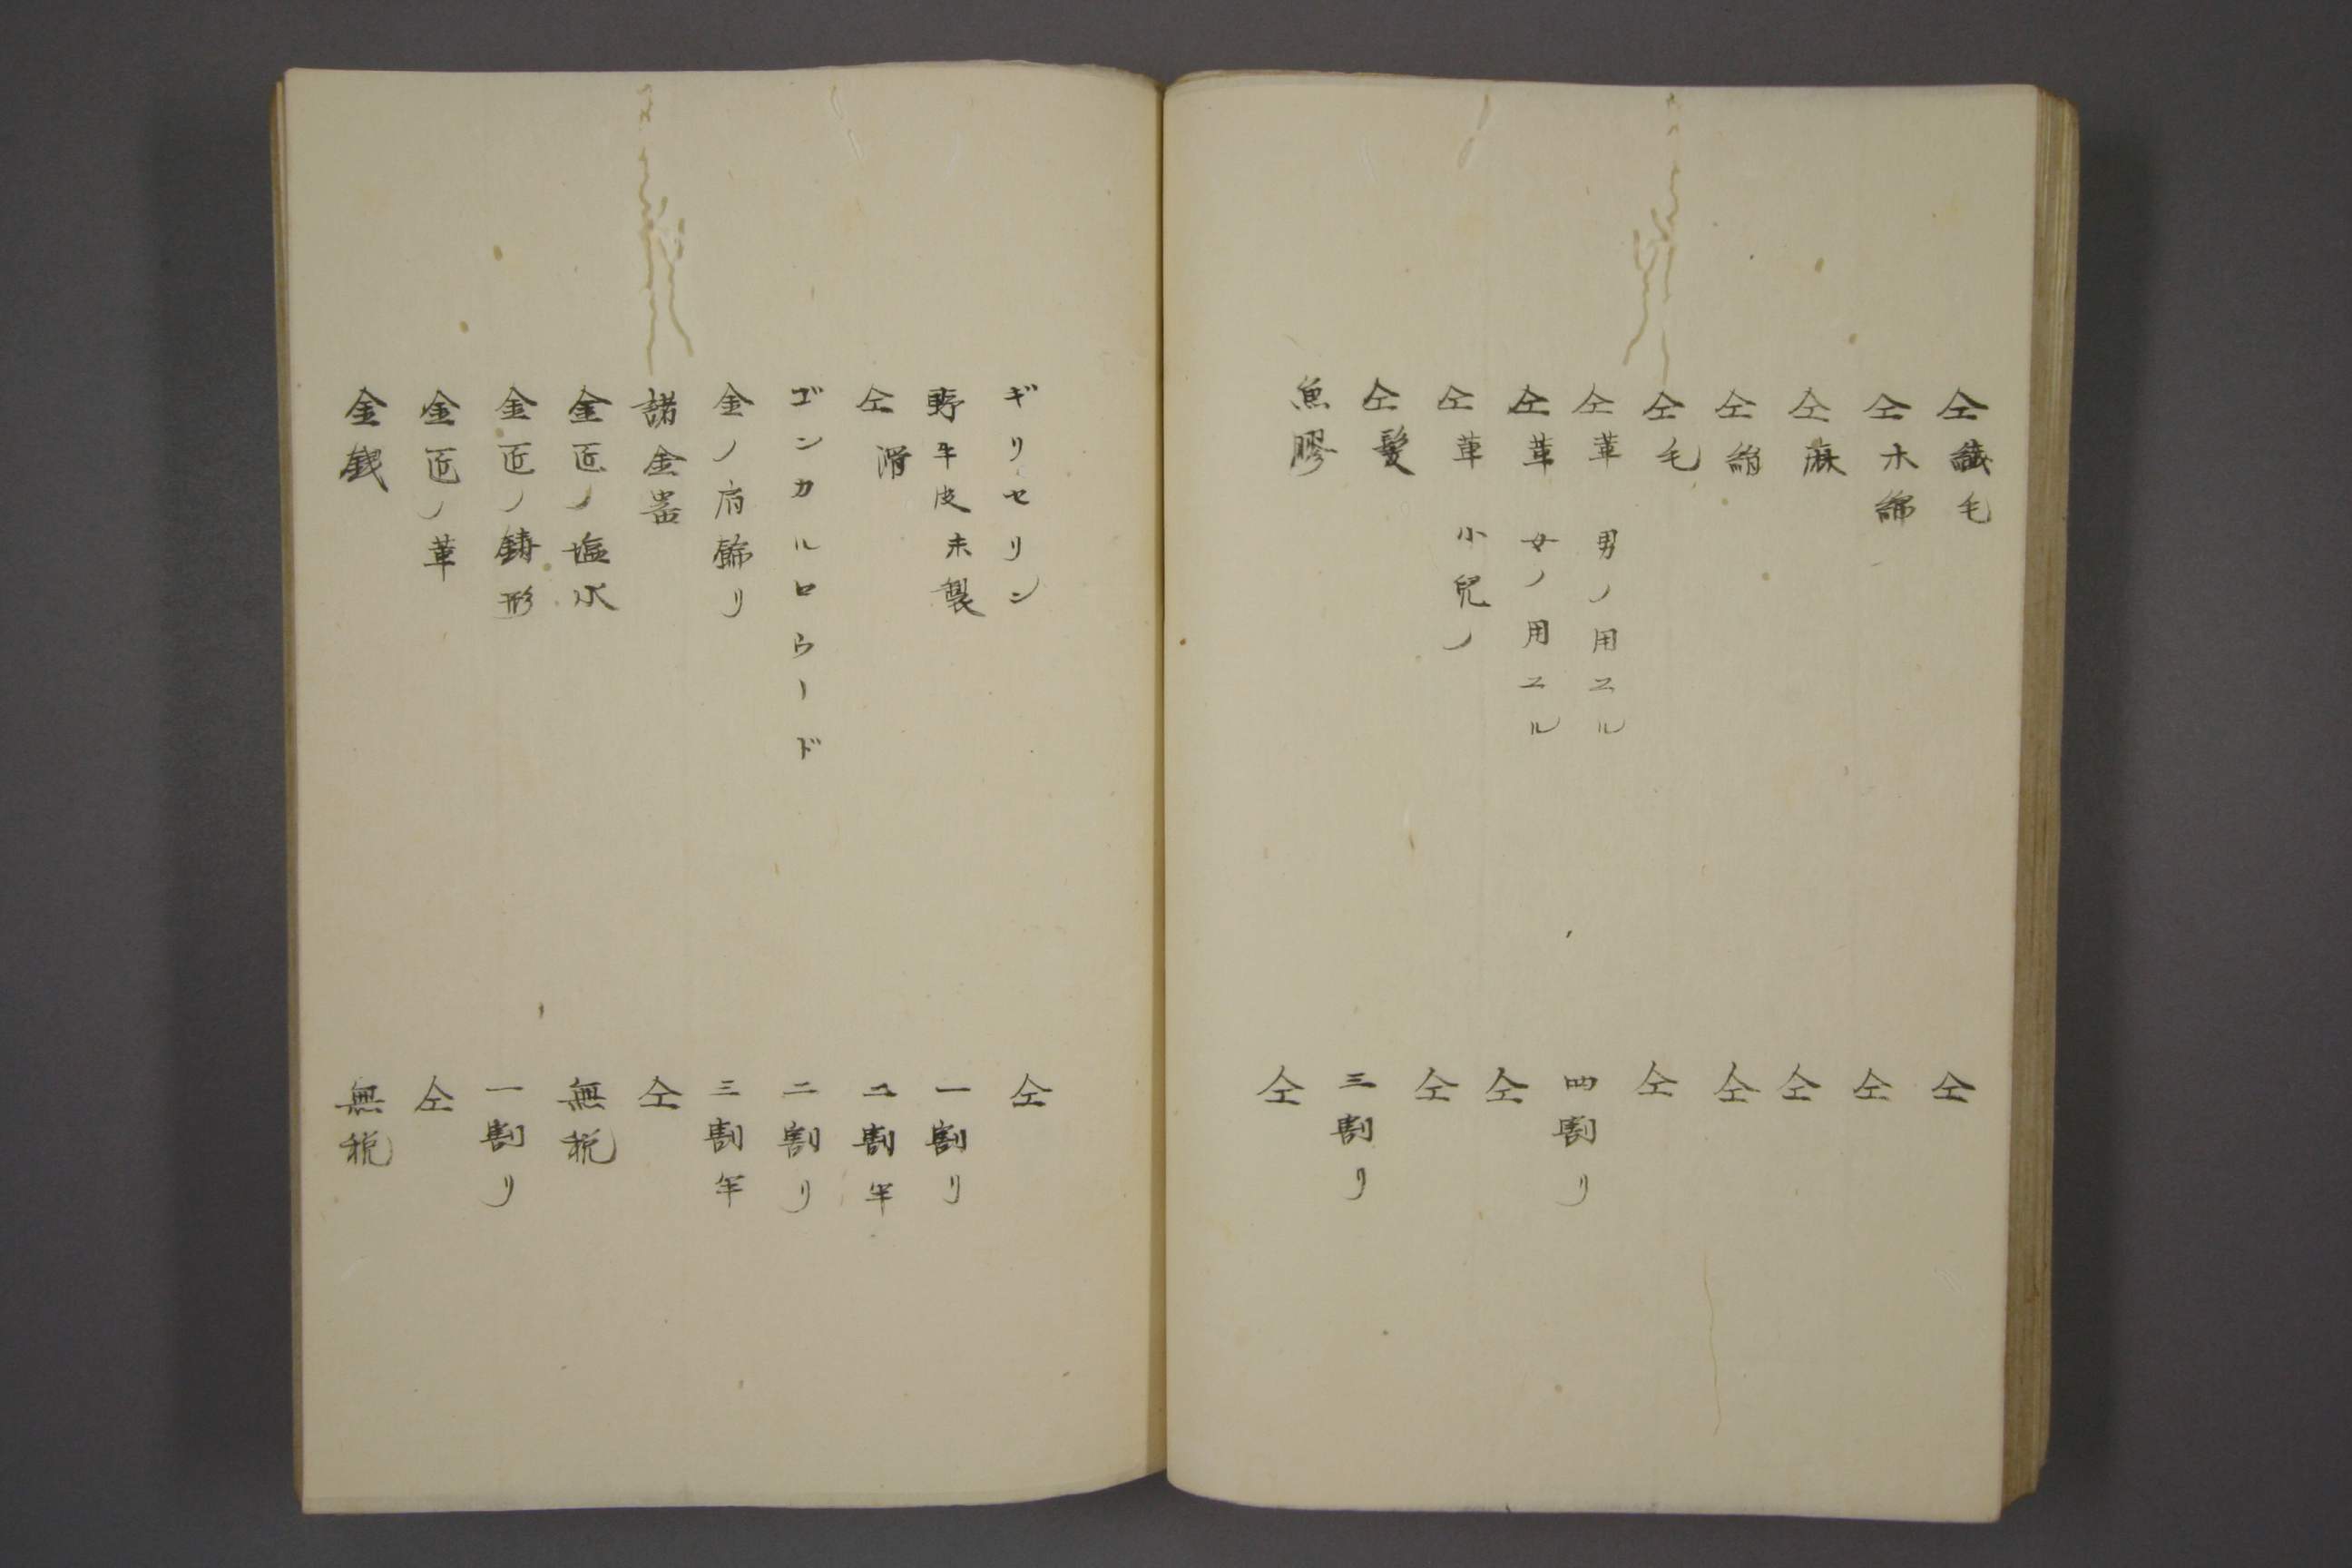 仝織毛　仝
仝木綿　仝
仝麻　仝
仝絹　仝
仝毛　仝
仝革　男ノ用エル　四割リ
仝革　女ノ用エル　仝
仝革　小兒ノ　仝
仝髮　三割リ
魚膠　仝
ギリセリン　仝
野牛皮未製　一割リ
仝滑　二割半
ゴンカルロウード　二割リ
金ノ肩飾リ　三割半
諸金器　仝
金匠ノ塩水　無税
金匠ノ鋳形　一割リ
金匠ノ革　仝
金銭　無税